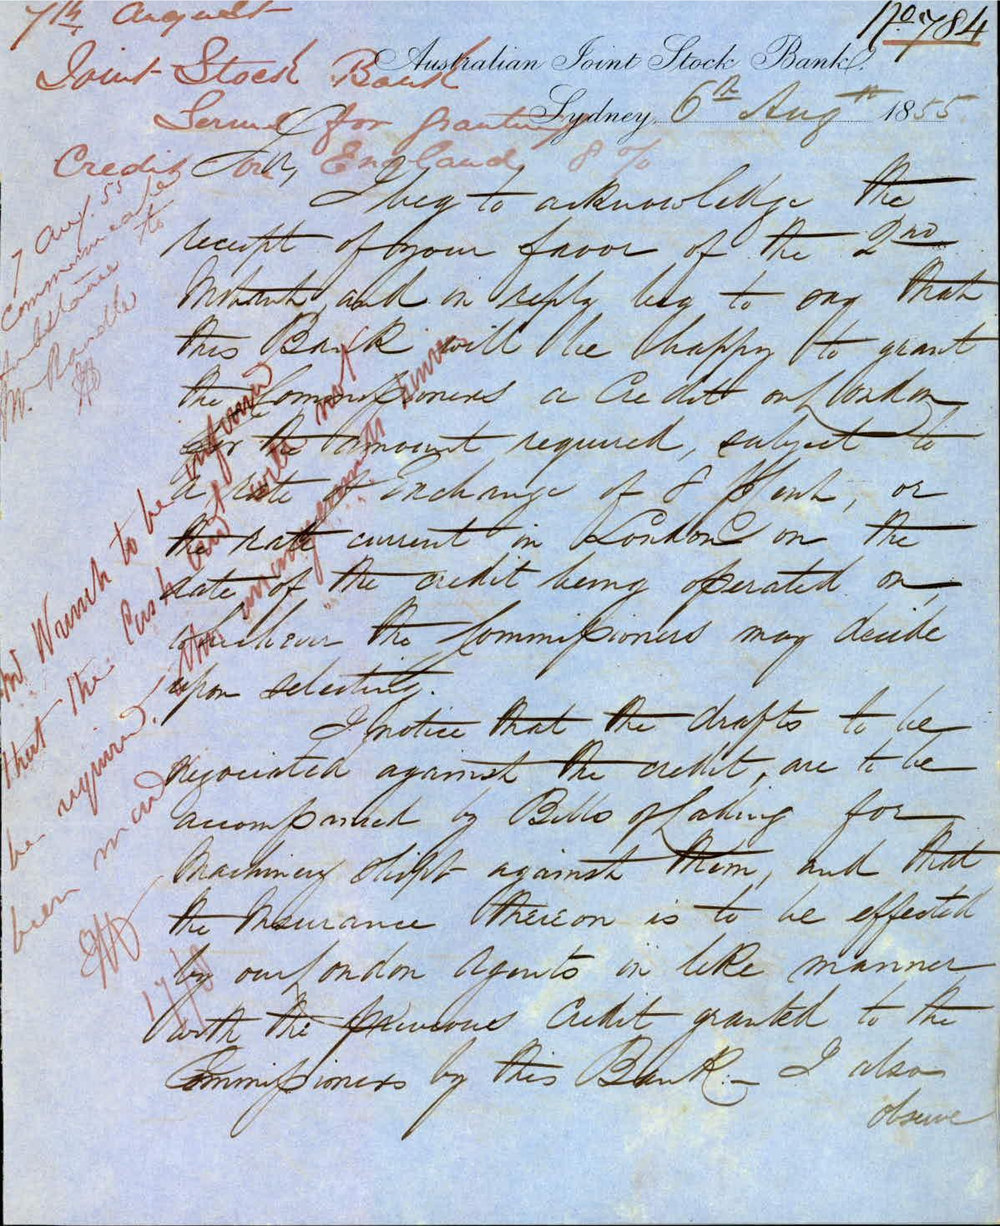 7th August
No. 784
Joint Stock Bank
Australian Joint Stock Bank.
Terms for granting
Sydney, 6th Augt 1855
Credit on England, 8 %
Sir,
I beg to acknowledge the
receipt of your favor of the 2nd
Instant, and in reply beg to say that
this Bank will be happy to grant
the Commissioners a Credit on London
for the amount required, subject to
a rate of Exchange of 8 p Cent, or
the rate current in London on the
date of the credit being operated on,
whichever the Commissioners may decide
upon selecting.
I notice that the drafts to be
negociated against the credit, are to be
accompanied by Bills of Lading for
Machinery shipt against them, and that
the Insurance thereon is to be effected
by our London Agents in like manner
with the previous Credit granted to the
Commissioners by this Bank. - I also
observe
7 Aug. 55
Communicate
substance to
Mr. Randle
Mr. Wrench to be informed
that the Cash Credit will not
be required, other arrangements having
been made
17/8